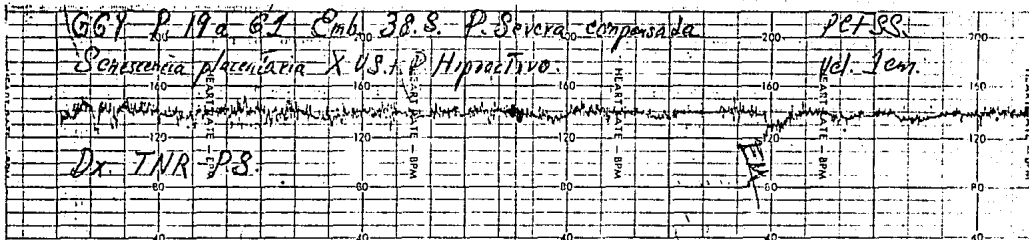 GGY P. 19a G1 Emb. 38.S. P. Severa compensada PCTSS.
Senescencia placentaria X U.S.+ P Hiporeactivo. Vel. 1cm.
200 200 200 200
160 160 160 160
HEART RATE - BPM HEART RATE - BPM HEART RATE - BPM HEART RATE - BPM
120 120 120 120 120
Dx. TNR-P.S.
80 80 80 80 80
40 40 40 40 40